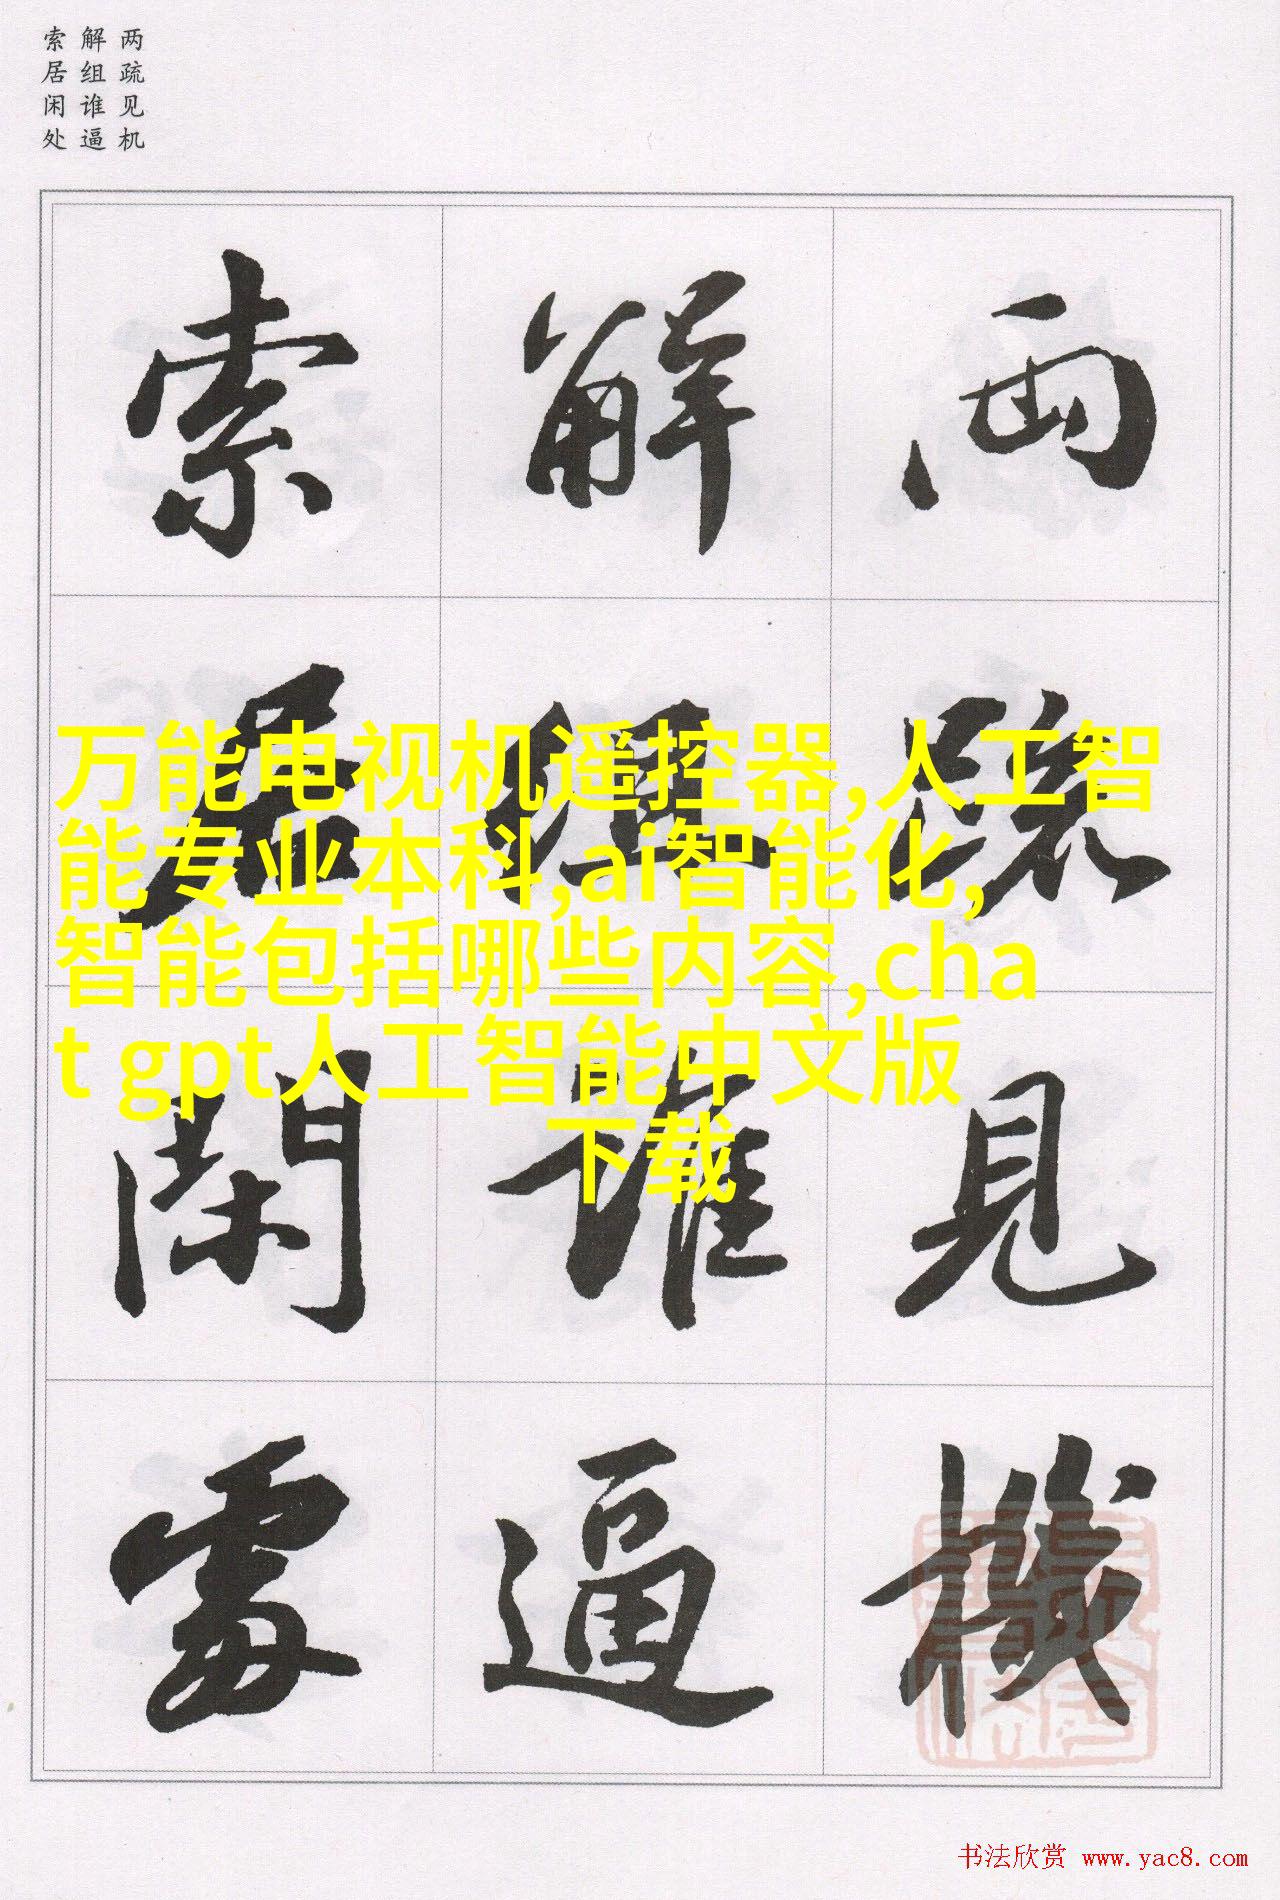 两疏见机
解组谁逼
索居闲处
兩疏見機
解組誰逼
索居閑處
万能电视机遥控器,人工智
能专业本科,ai智能化,
智能包括哪些内容,cha
t gpt人工智能中文版
下载
书法欣赏 www.yac8.com